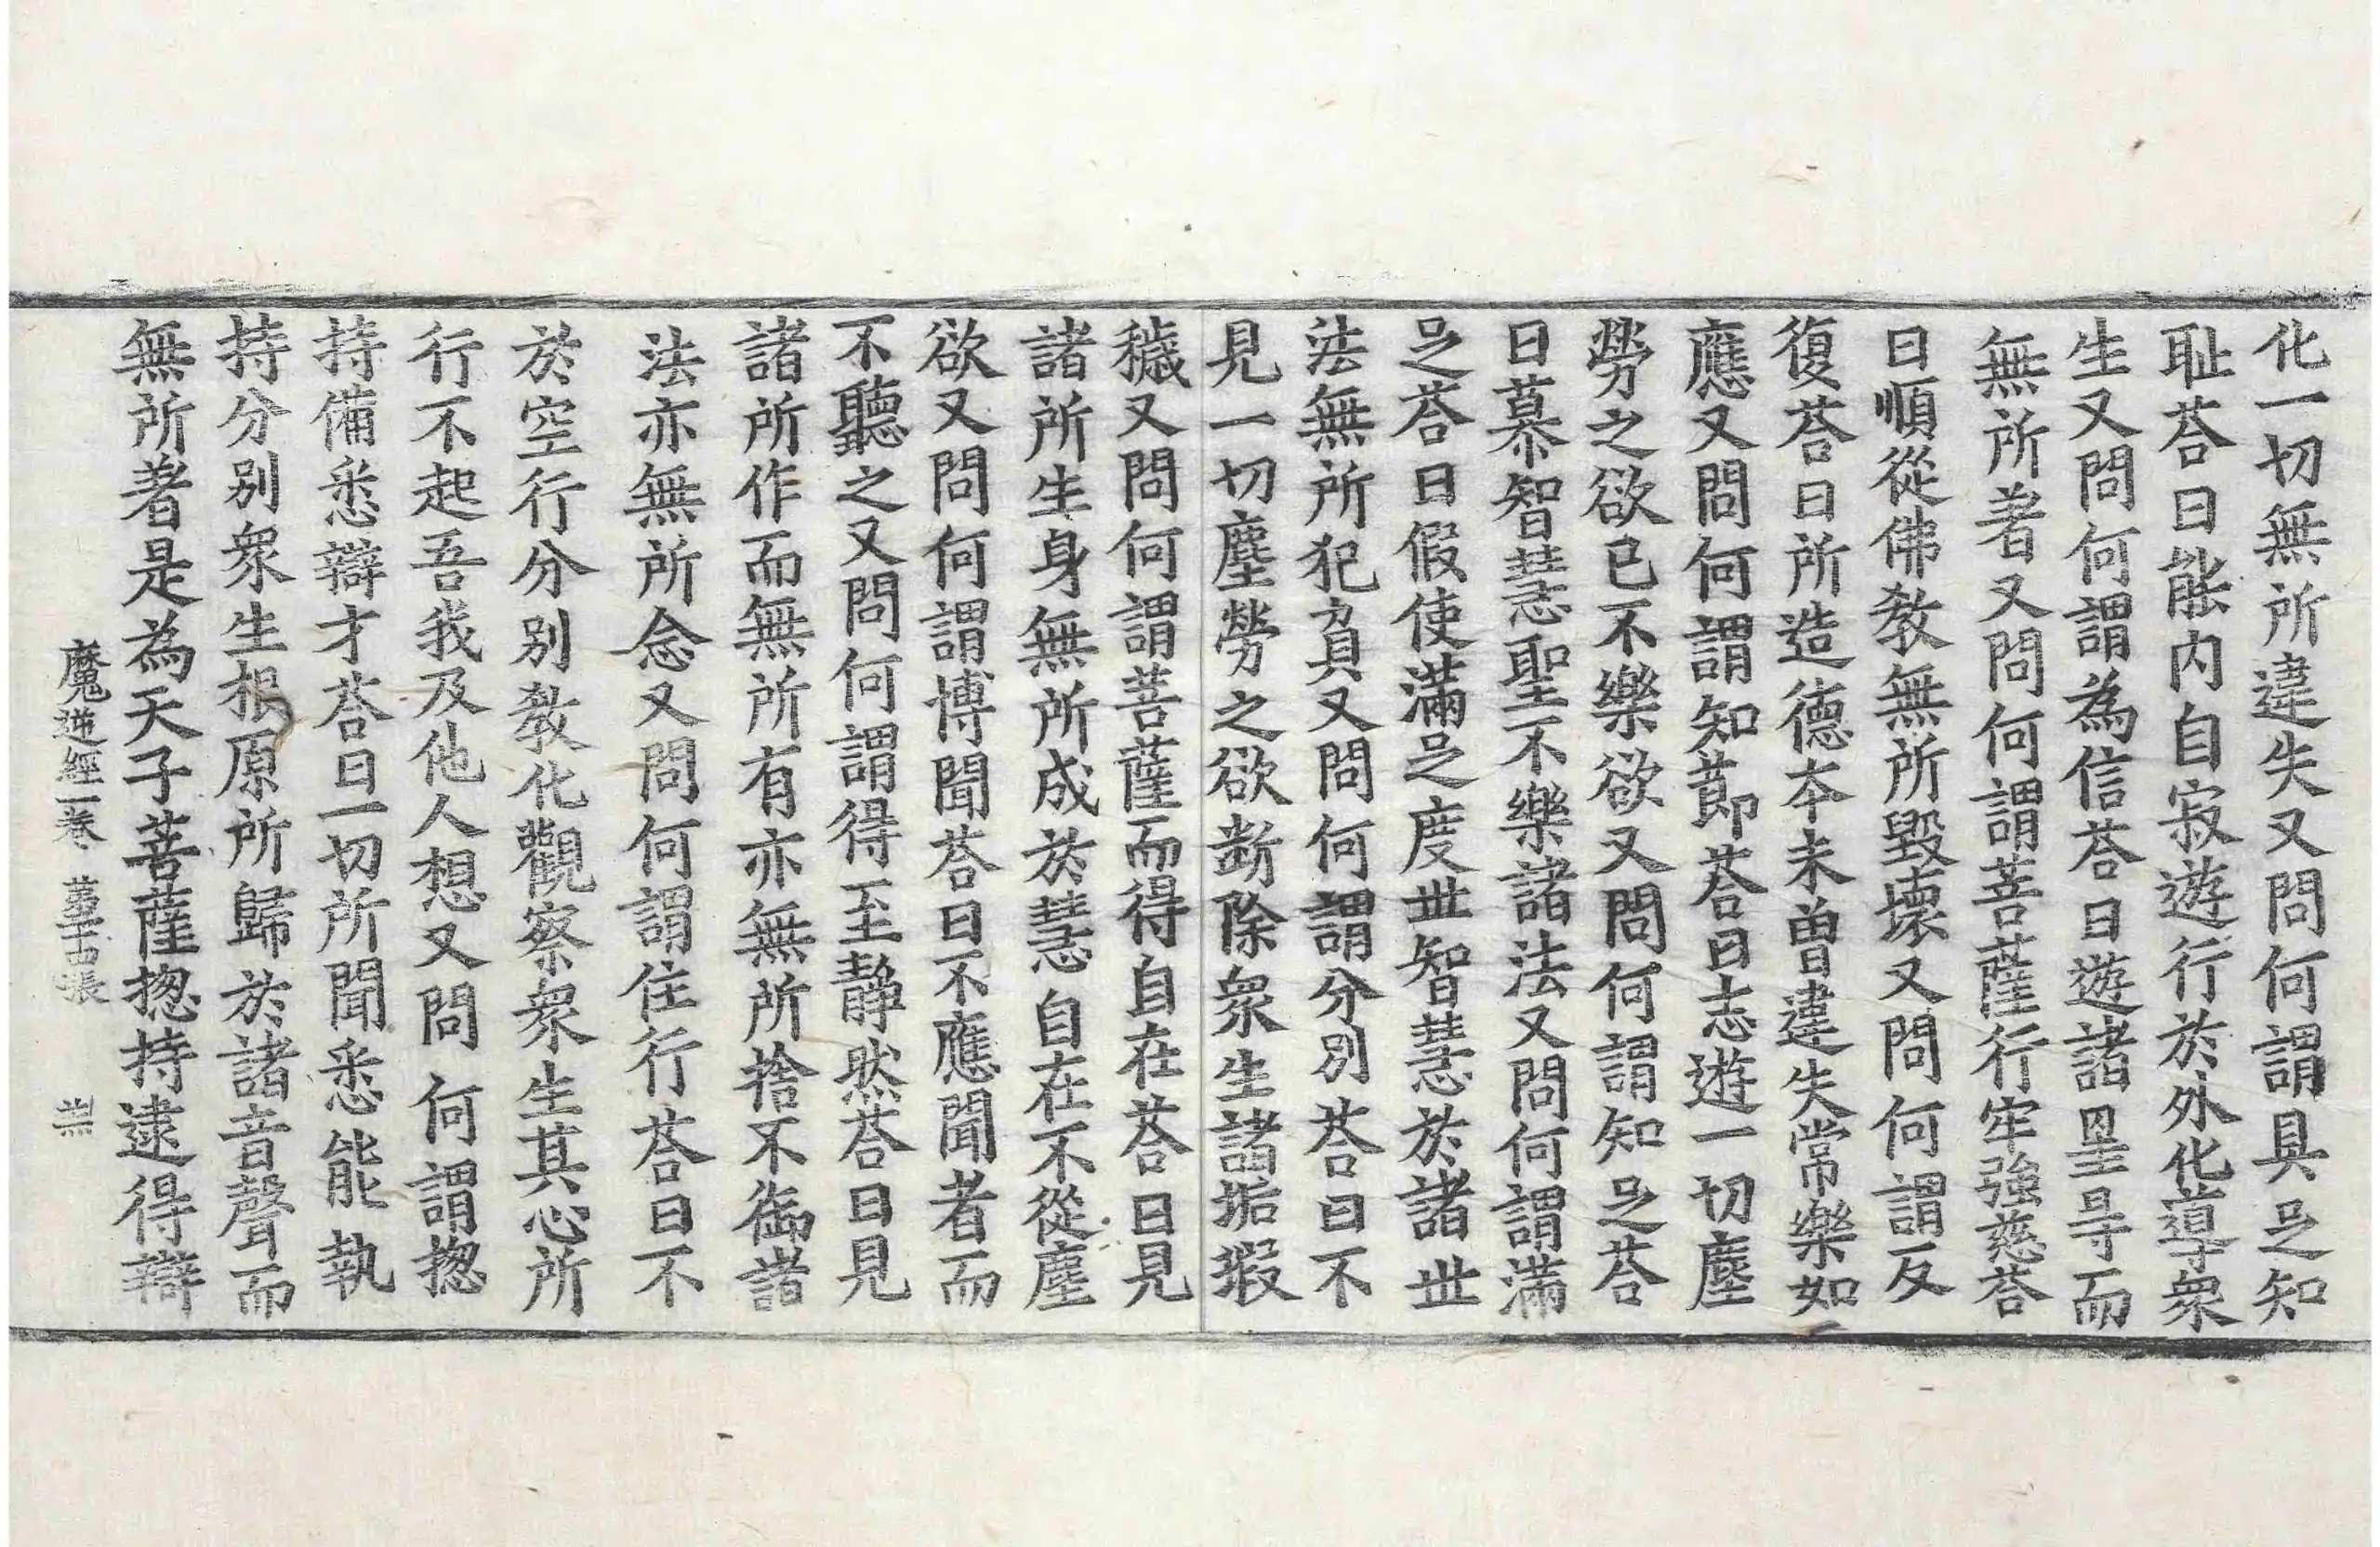 化一切無所違失又問何謂具足知
耻荅曰能内自寂遊行於外化導衆
生又問何謂為信荅曰遊諸罣㝵而
無所著又問何謂菩薩行牢強慈荅
曰順從佛教無所毀壞又問何謂反
復荅曰所造德本未曽違失常樂如
應又問何謂知莭荅曰志遊一切塵
勞之欲已不樂欲又問何謂知足荅
曰慕智慧聖不樂諸法又問何謂滿
足荅曰假使滿足度世智慧於諸世
法無所犯負又問何謂分別荅曰不
見一切塵勞之欲断除衆生諸垢瑕
穢又問何謂菩薩而得自在荅曰見
諸所生身無所成於慧自在不從塵
欲又問何謂博聞荅曰不應聞者而
不聽之又問何謂得至靜然荅曰見
諸所作而無所有亦無所捨不御諸
法亦無所念又問何謂住行荅曰不
於空行分别教化觀察衆生其心所
行不起吾我及他人想又問何謂揔
持備悉辯才荅曰一切所聞悉能執
持分别衆生根原所歸於諸音聲而
無所著是為天子菩薩揔持逮得辯
魔逆經一卷 苐十六張 丗